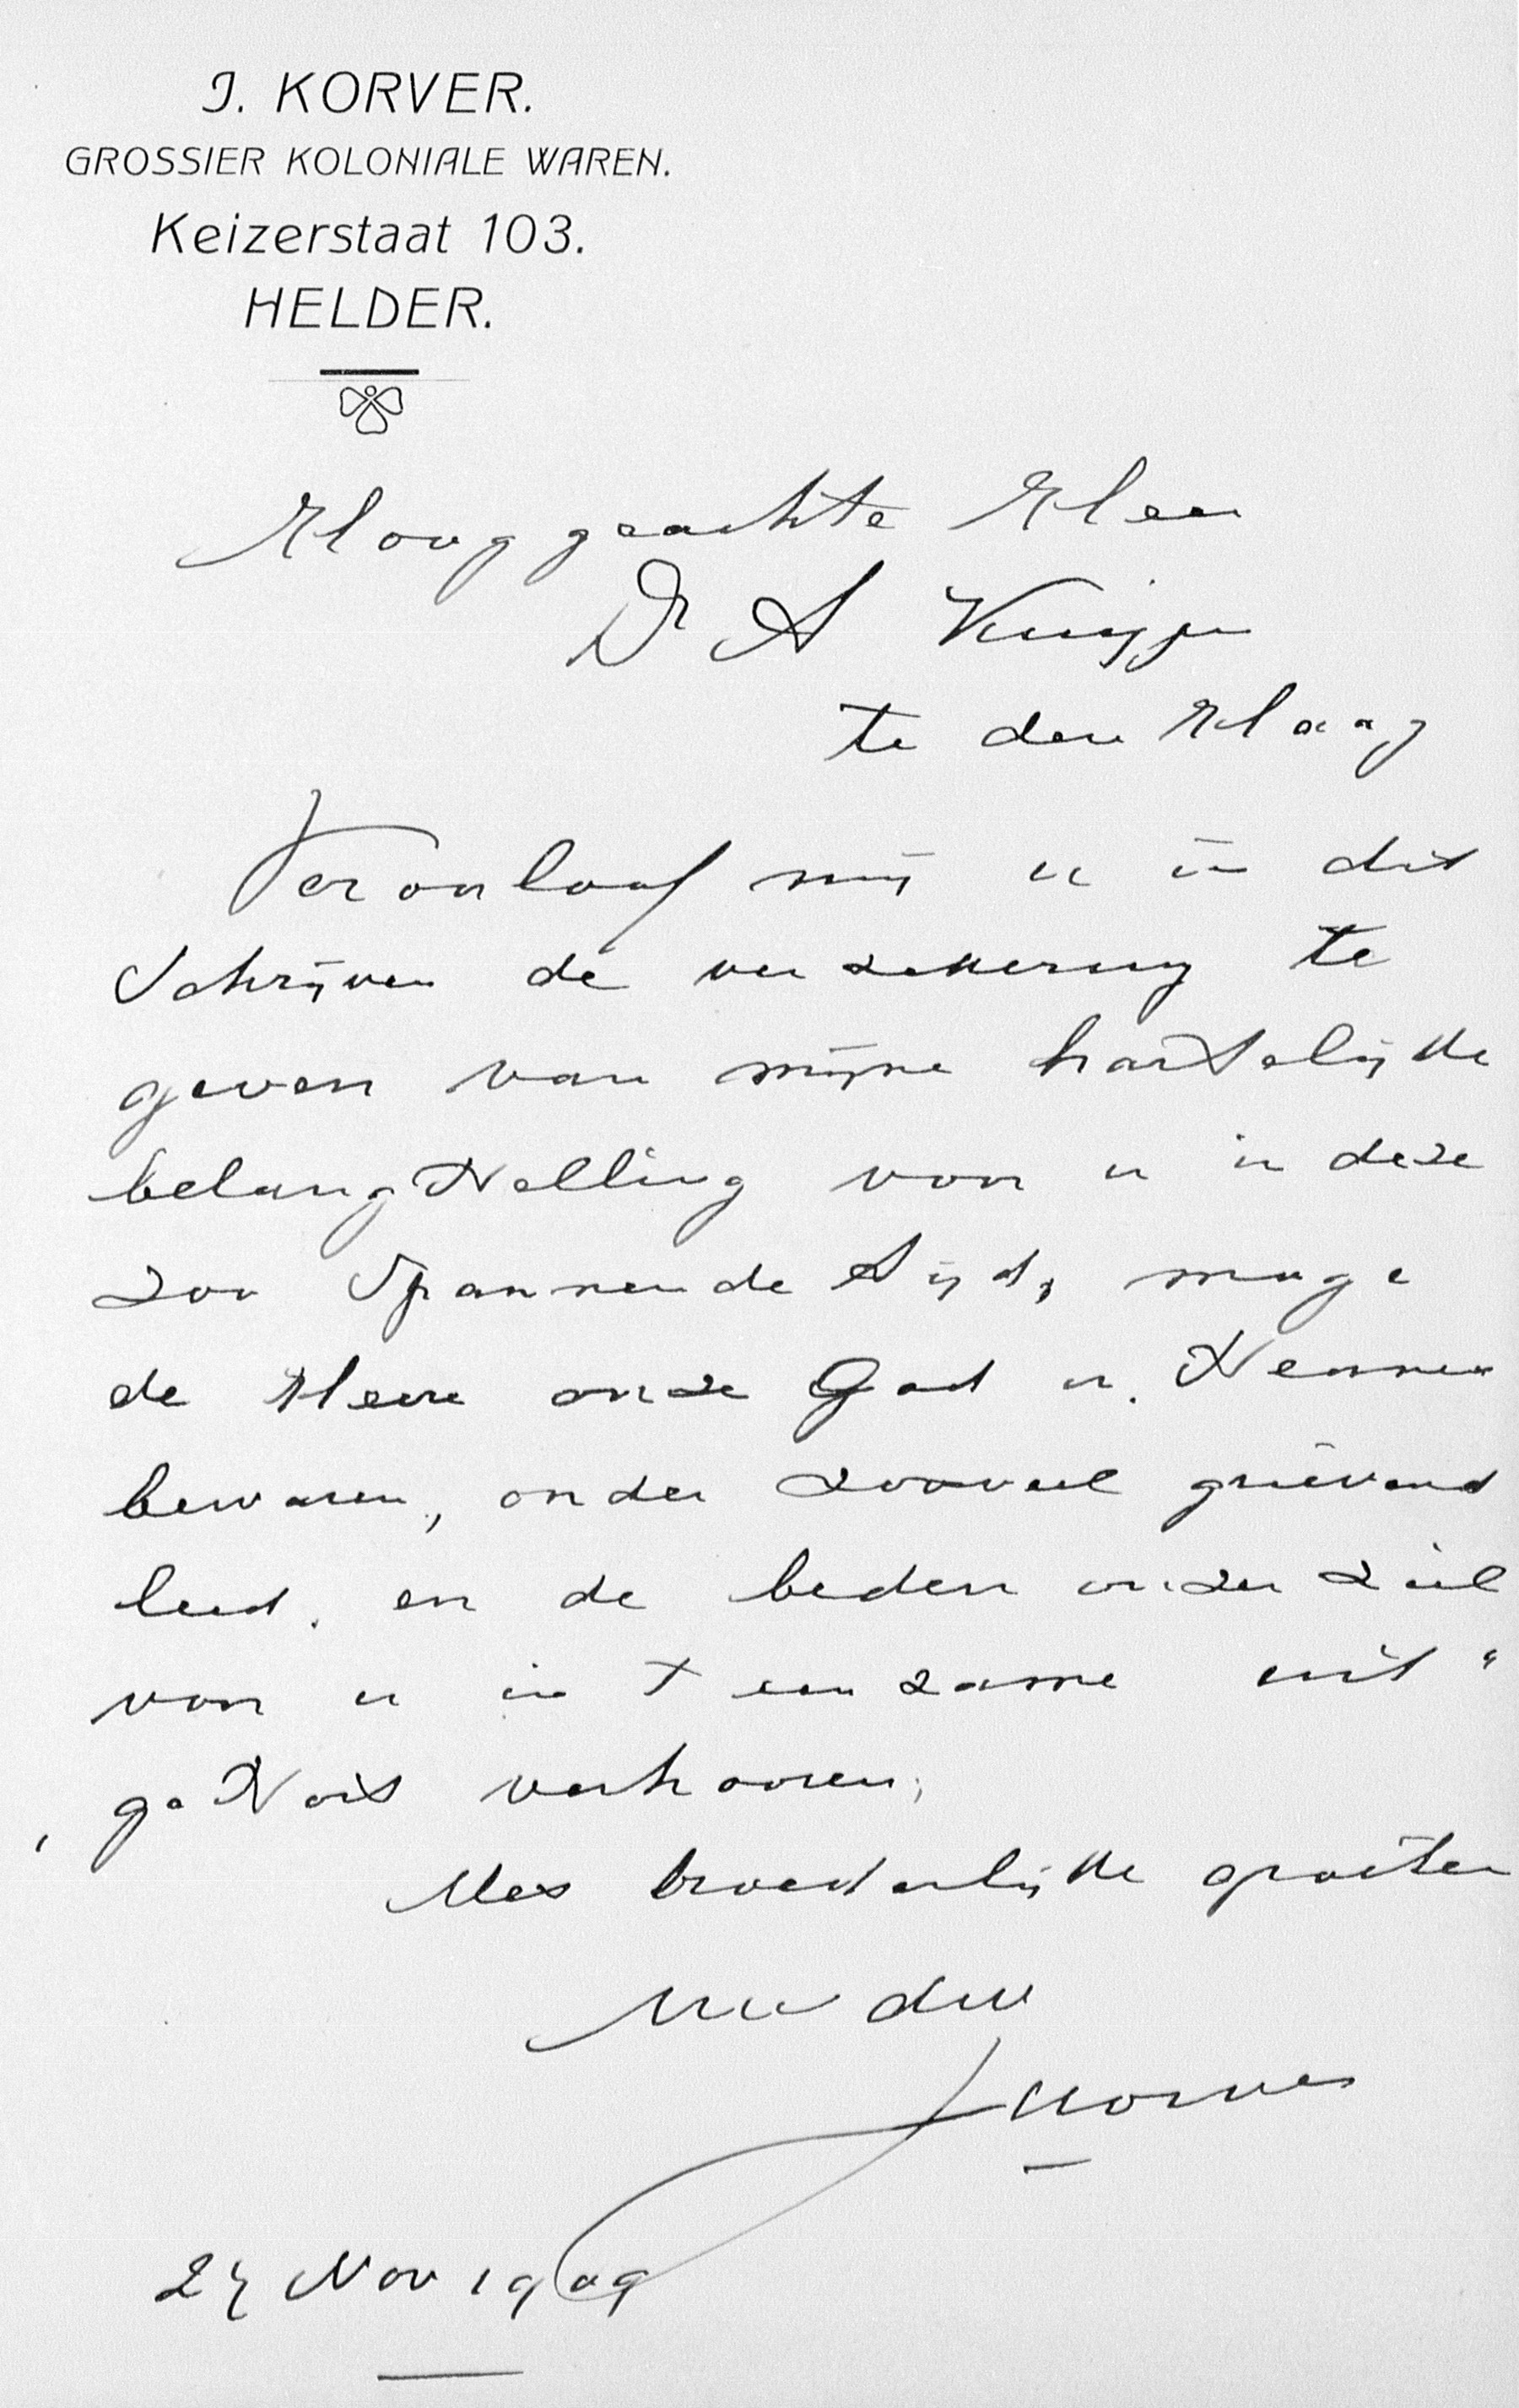 J. KORVER.
GROSSIER KOLONIALE WAREN.
Keizerstaat 103.
HELDER.
Hooggeachte Heer
Dr A Kuijper
te den Haag
Veroorloof mij u in dit
Schrijven de verzekering te
geven van mijne hartelijke
belangstelling voor u in deze
zoo Spannende tijd, moge
de Heere onze God u. sterken
bewaren, onder zooveel grievend
leed. en de beden onzer ziel
voor u in t eenzame uit"
gestort verhooren,
Met broederlijke groeten
Uw dw
J Korver
27 Nov 1909